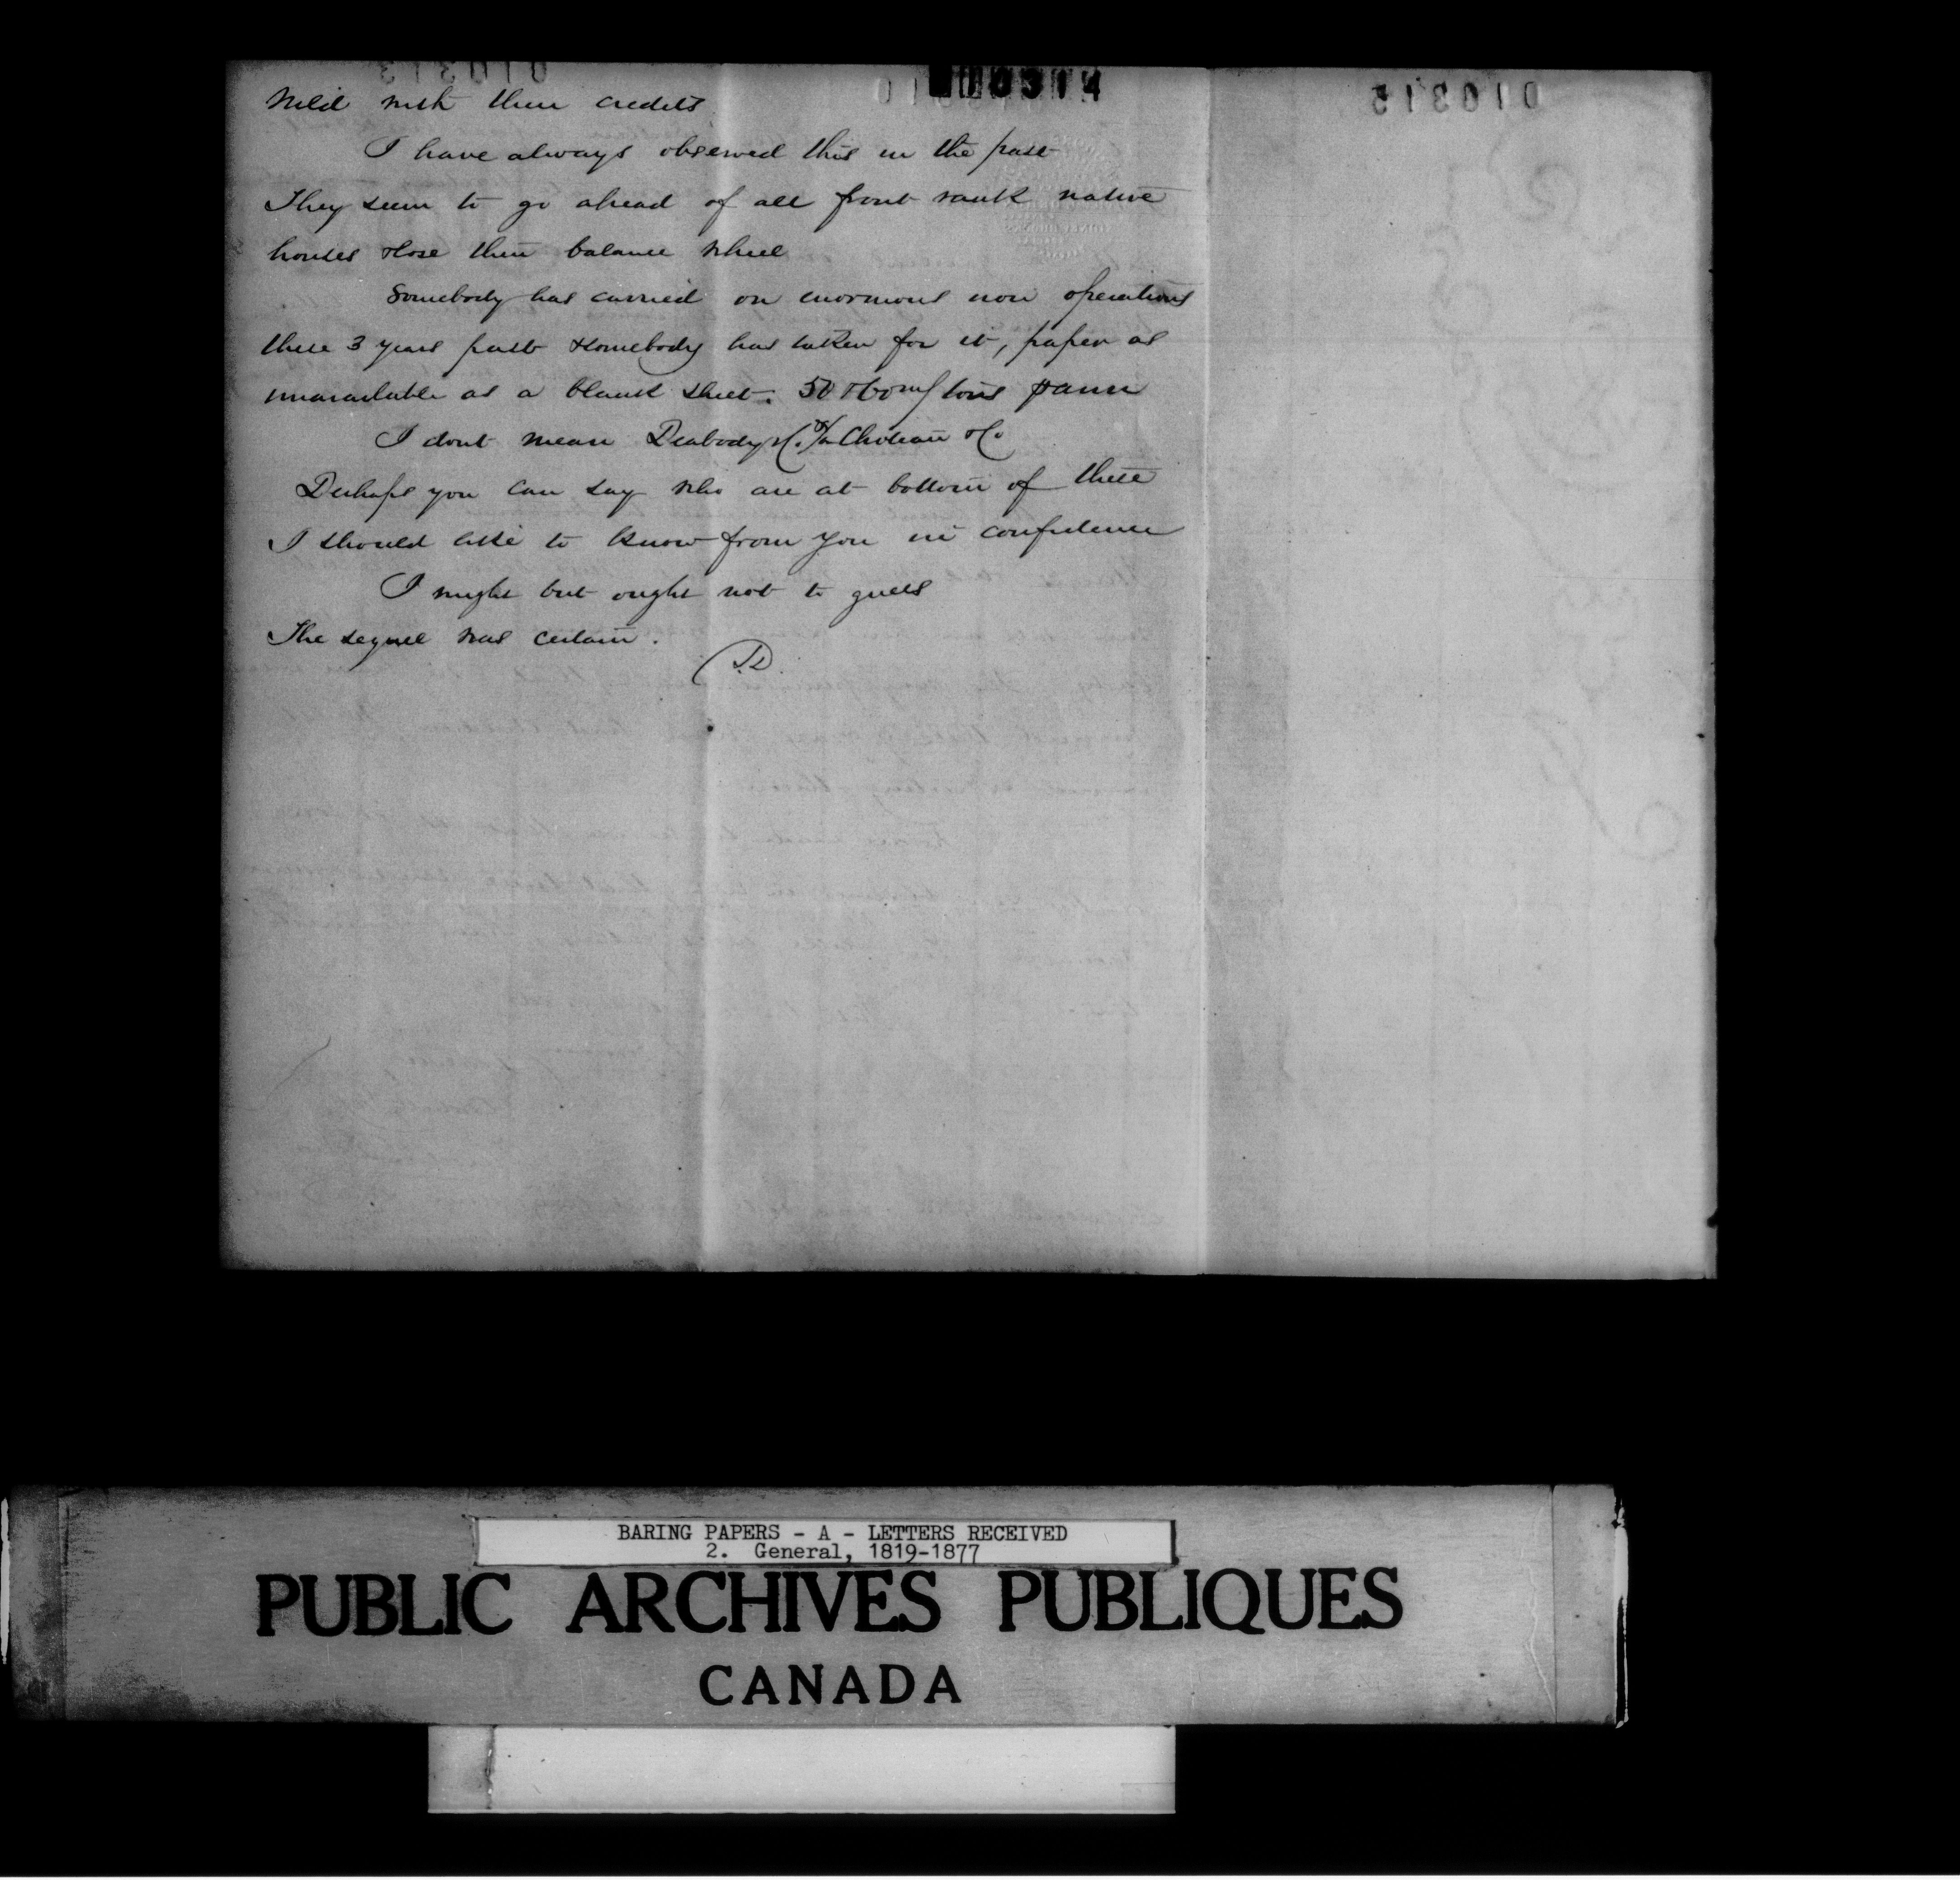 010314
wild with their credits
I have always observed this in the past
They seem to go ahead of all front rank native
houses & lose their balance wheel
Somebody has carried on enormous iron operations
these 3 years past & somebody has taken for it, paper as
unavailable as a blank sheet. 50 & 60 m/ tons
I dont mean Peabody & Co. o/a Choteau & Co
Perhaps you can say who are at bottom of these
I should like to know from you in confidence
I might but ought not to guess
The sequel was certain.
BARING PAPERS - A - LETTERS RECEIVED
2. General, 1819-1877
PUBLIC ARCHIVES PUBLIQUES
CANADA